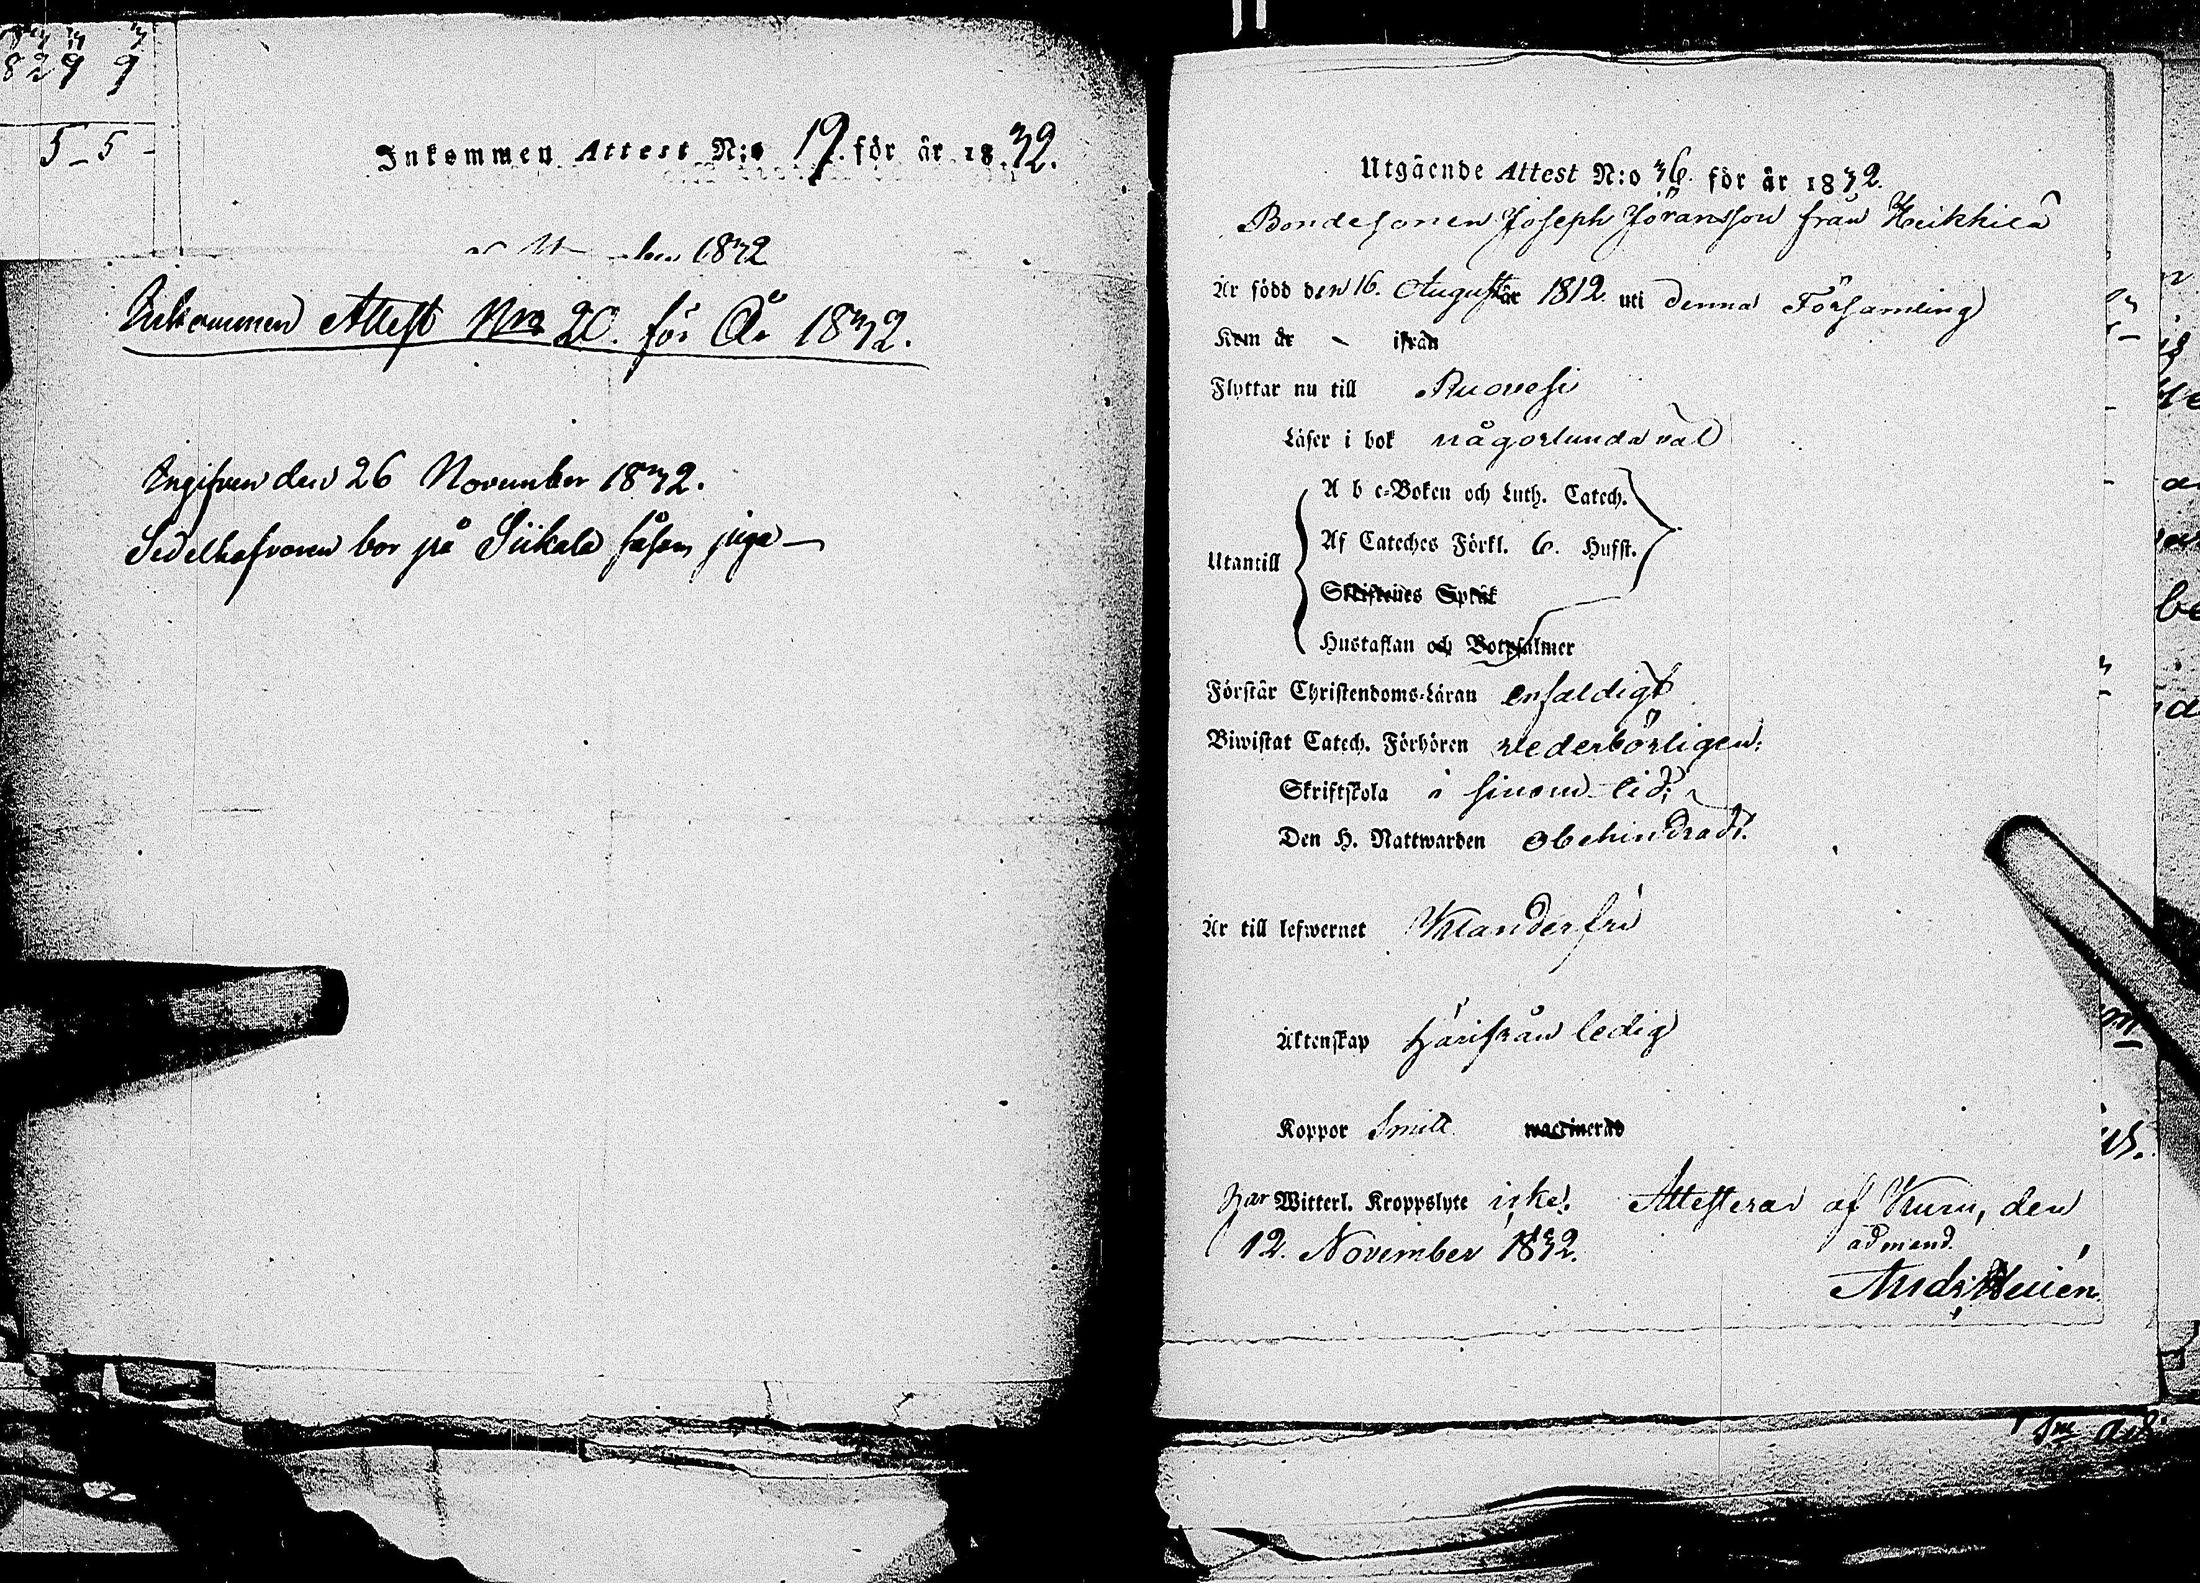 829 9
5-5-
Inkommen Attest N:o 19. för år 1832.
1832
Inkommen Attest Nro 20. för År 1832.
Ingifven den 26 November 1832.
Sedelhafvaren bor på Siikala såsom
Utgående Attest N:o 36. för år 1832.
Bondesonen Joseph Jöransson från Heikkilä
Är född den 16. Augusti år 1812 uti denna Församling
Kom år - ifrån
Flyttar nu till Ruovesi
Läser i bok någorlunda väl
A b c-Boken och Luth. Catech.
Af Cateches Förkl. 6. Hufst.
Utantill
Skriftenes Språk
Hustaflan och Botpsalmer
Förstår Christendoms-Läran enfaldigt
Biwistat Catech. Förhören vederbörligen;
Skriftskola i sinom tid;
Den H. Nattwarden obehindradt.
Är till lefwernet Klanderfri
Äktenskap härifrån ledig
Koppor Smitt waccinerad
har Witterl. Kroppslyte icke! Attesterar af Kuru, den
12. November 1832.
adment.
Andr.